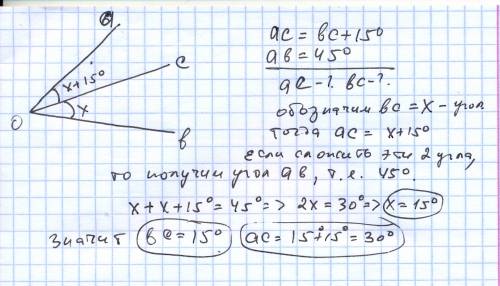 a
x+15°
c
x
O
b
ac = bc+15°
ab = 45°
ac -? bc-?
обозначим bc = x - угол
тогда ac = x+15°
если сложить эти 2 угла,
то получим угол ab, т.е. 45°.
x + x + 15° = 45° => 2x = 30° => x = 15°
значит bc = 15° ac = 15°+15° = 30°